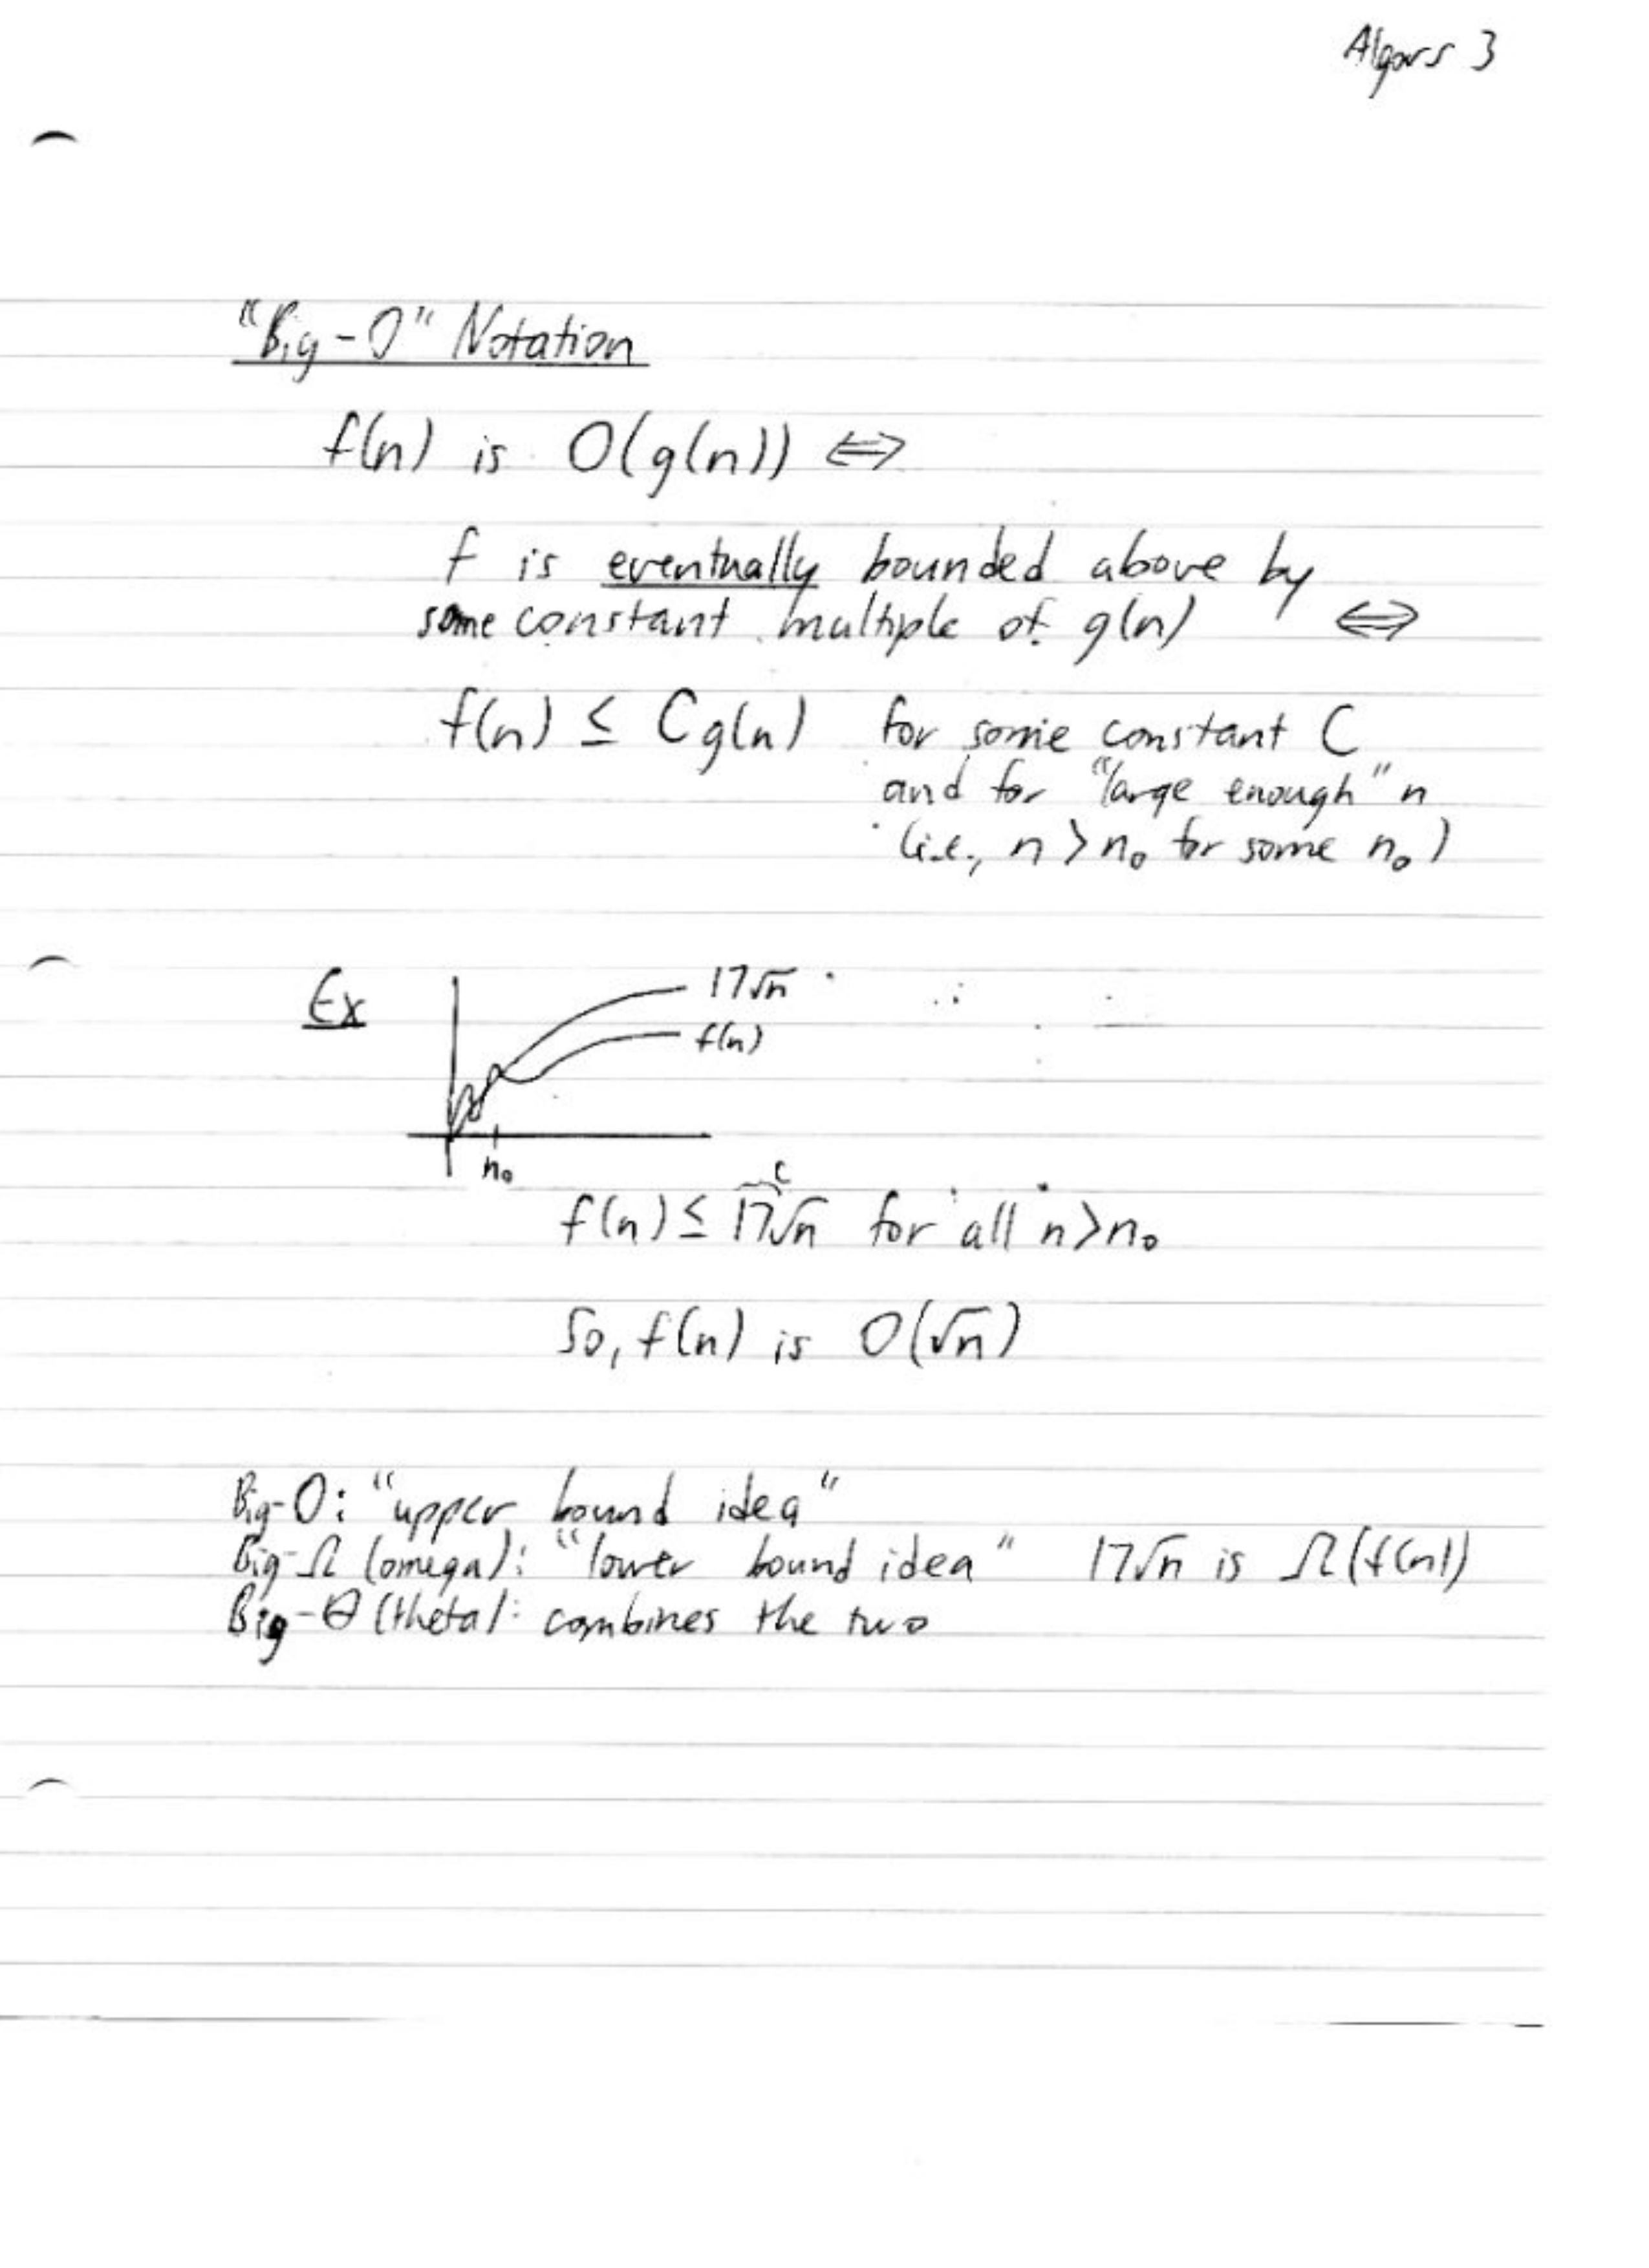 Algors 3
"Big-O" Notation
f(n) is O(g(n)) ⇔
f is eventually bounded above by
some constant multiple of g(n) ⇔
f(n) ≤ C g(n) for some constant C
and for "large enough" n
(i.e., n > n₀ for some n₀)
Ex
17√n
f(n)
n₀
C
f(n) ≤ 17√n for all n > n₀
So, f(n) is O(√n)
Big-O: "upper bound idea"
Big-Ω (omega): "lower bound idea" 17√n is Ω(f(n))
Big-Θ (theta): combines the two